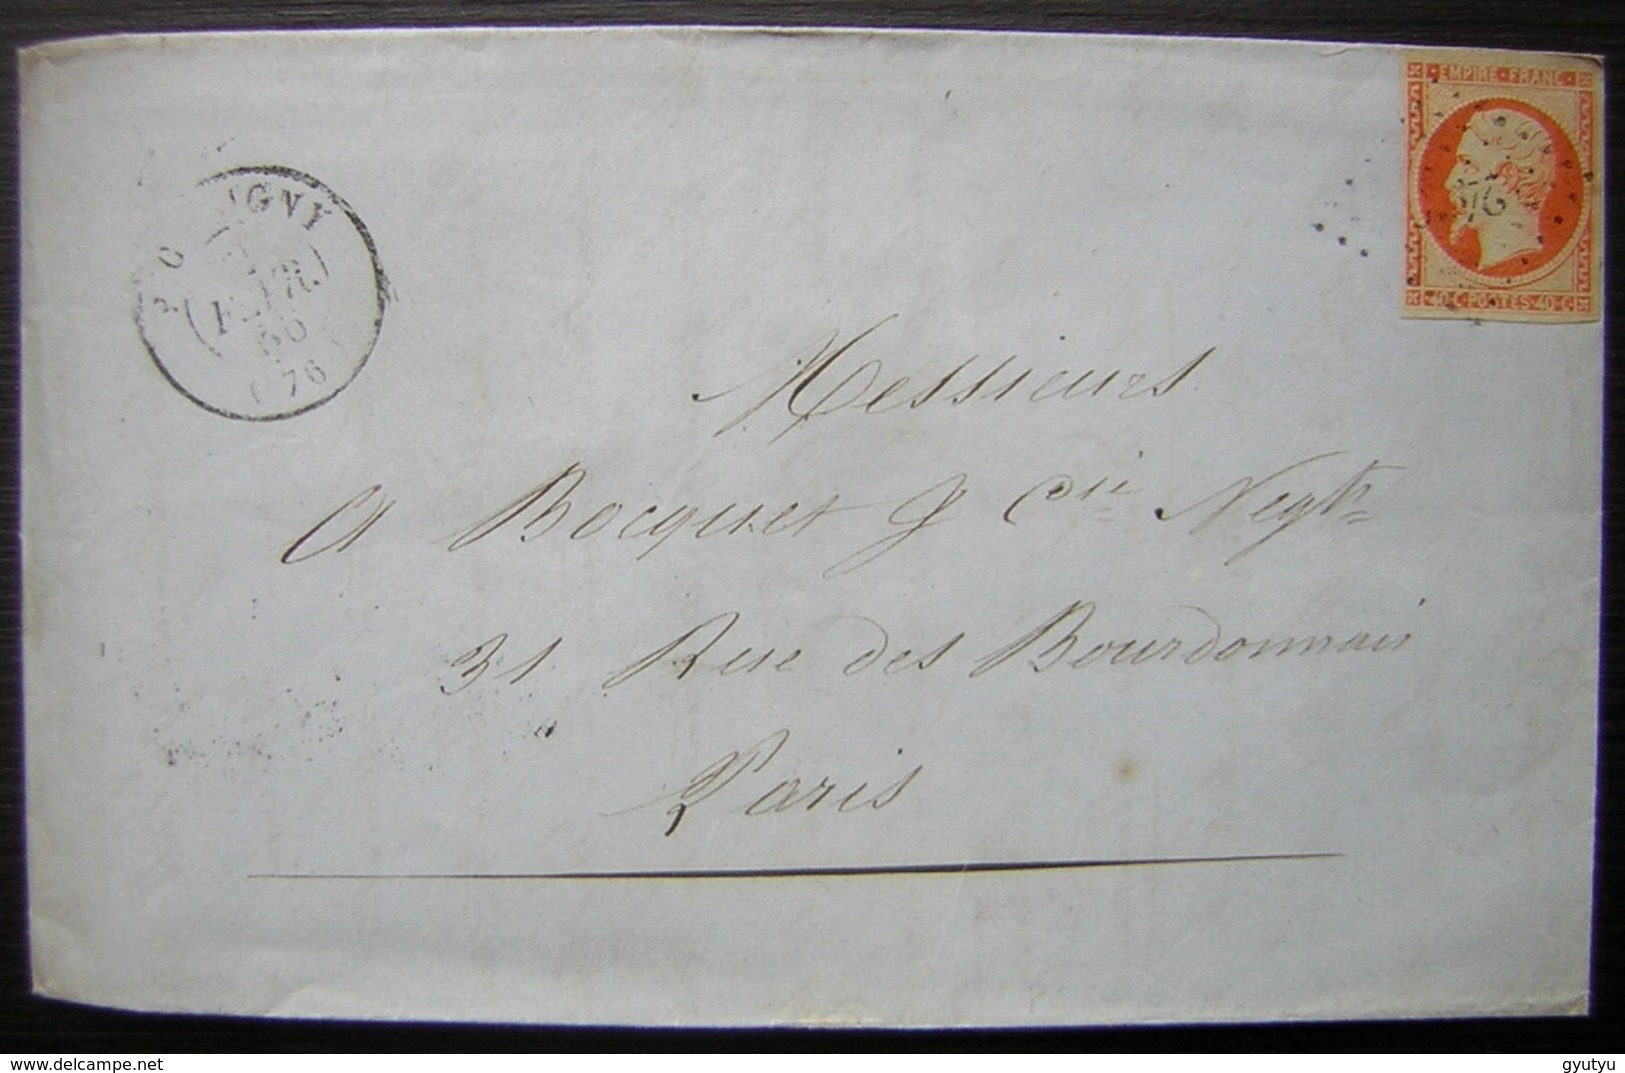 EMPIRE·FRANC·
40·C·POSTES·40·C
IGNY
FEVR.
56
(76)
Messieurs
A Bocquet & Cie Negts
31 Rue des Bourdonnais
Paris
delcampe.net
gyutyu